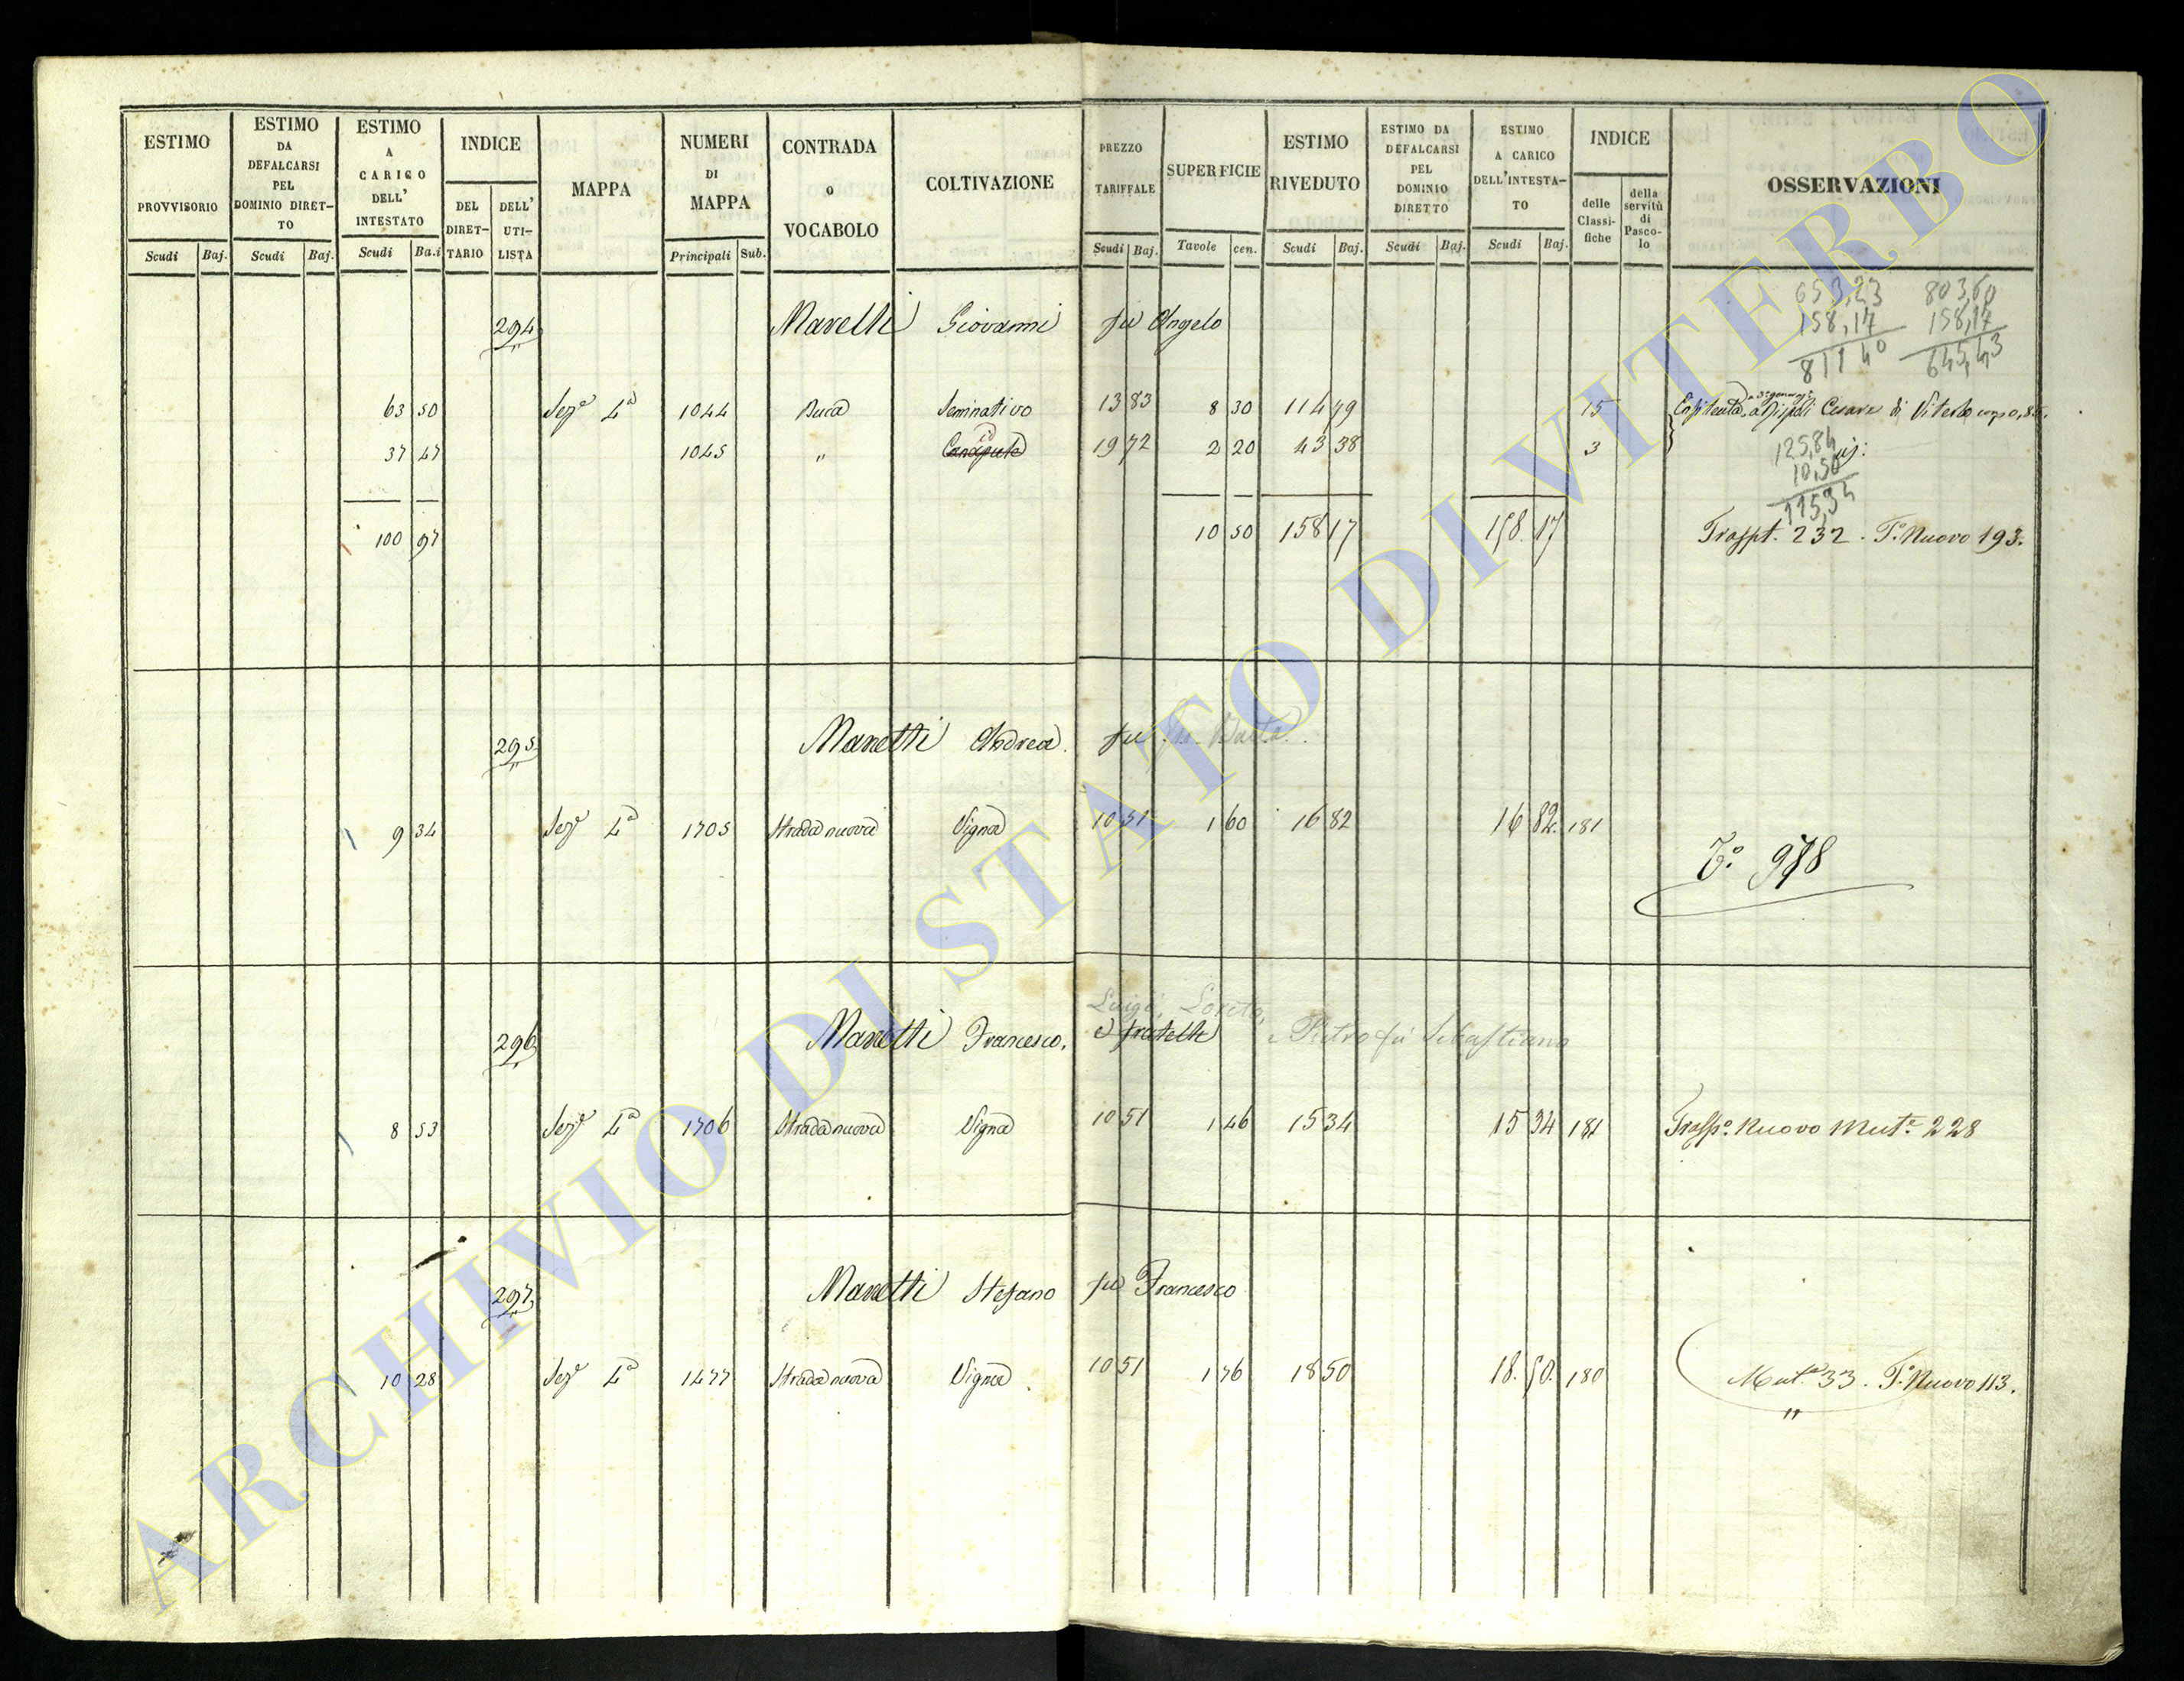 ESTIMO PROVVISORIO
ESTIMO DA DEFALCARSI PEL DOMINIO DIRET-TO
ESTIMO A CARICO DELL' INTESTATO
INDICE
DEL DIRET-TARIO
DELL' UTI-LISTA
MAPPA
NUMERI DI MAPPA
CONTRADA o VOCABOLO
COLTIVAZIONE
PREZZO TARIFFALE
SUPERFICIE
ESTIMO RIVEDUTO
ESTIMO DA DEFALCARSI PEL DOMINIO DIRETTO
ESTIMO A CARICO DELL'INTESTA-TO
INDICE
delle Classi-fiche
della servitù di Pasco-lo
OSSERVAZIONI
Scudi Baj. Scudi Baj. Scudi Ba.i Principali Sub. Scudi Baj. Tavole cen. Scudi Baj. Scudi Baj. Scudi Baj.
653,23 803,60
158,17 158,17
811 40 645,43
294 Manetti Giovanni fu Angelo
63 50 Sez.e 4a 1044 Buca Seminativo 13 83 8 30 114 79 15 Cesare di Viterbo
37 47 1045 " 19 72 2 20 43 38 3
125,84
10,50
115,34
100 97 10 50 158 17 158. 17 Traspt. 232 - T.o Nuovo 193.
295 Manetti Andrea. fu
9 34 Sez.e 4a 1705 Strada nuova Vigna 10 51 1 60 16 82 16 82. 181
T.o 978
Luigi, Loreto,
296 Manetti Francesco, e fratelli Pietro fu Sebastiano
8 53 Sez.e 4a 1706 Strada nuova Vigna 10 51 1 46 15 34 15 34 181 Trasp.o Nuovo Mut.e 228
297 Manetti Stefano fu Francesco
10 28 Sez.e 4a 1477 Strada nuova Vigna 10 51 1 76 18 50 18. 50. 180 Mut.e 33. T.o Nuovo 113.
"
ARCHIVIO DI STATO DI VITERBO